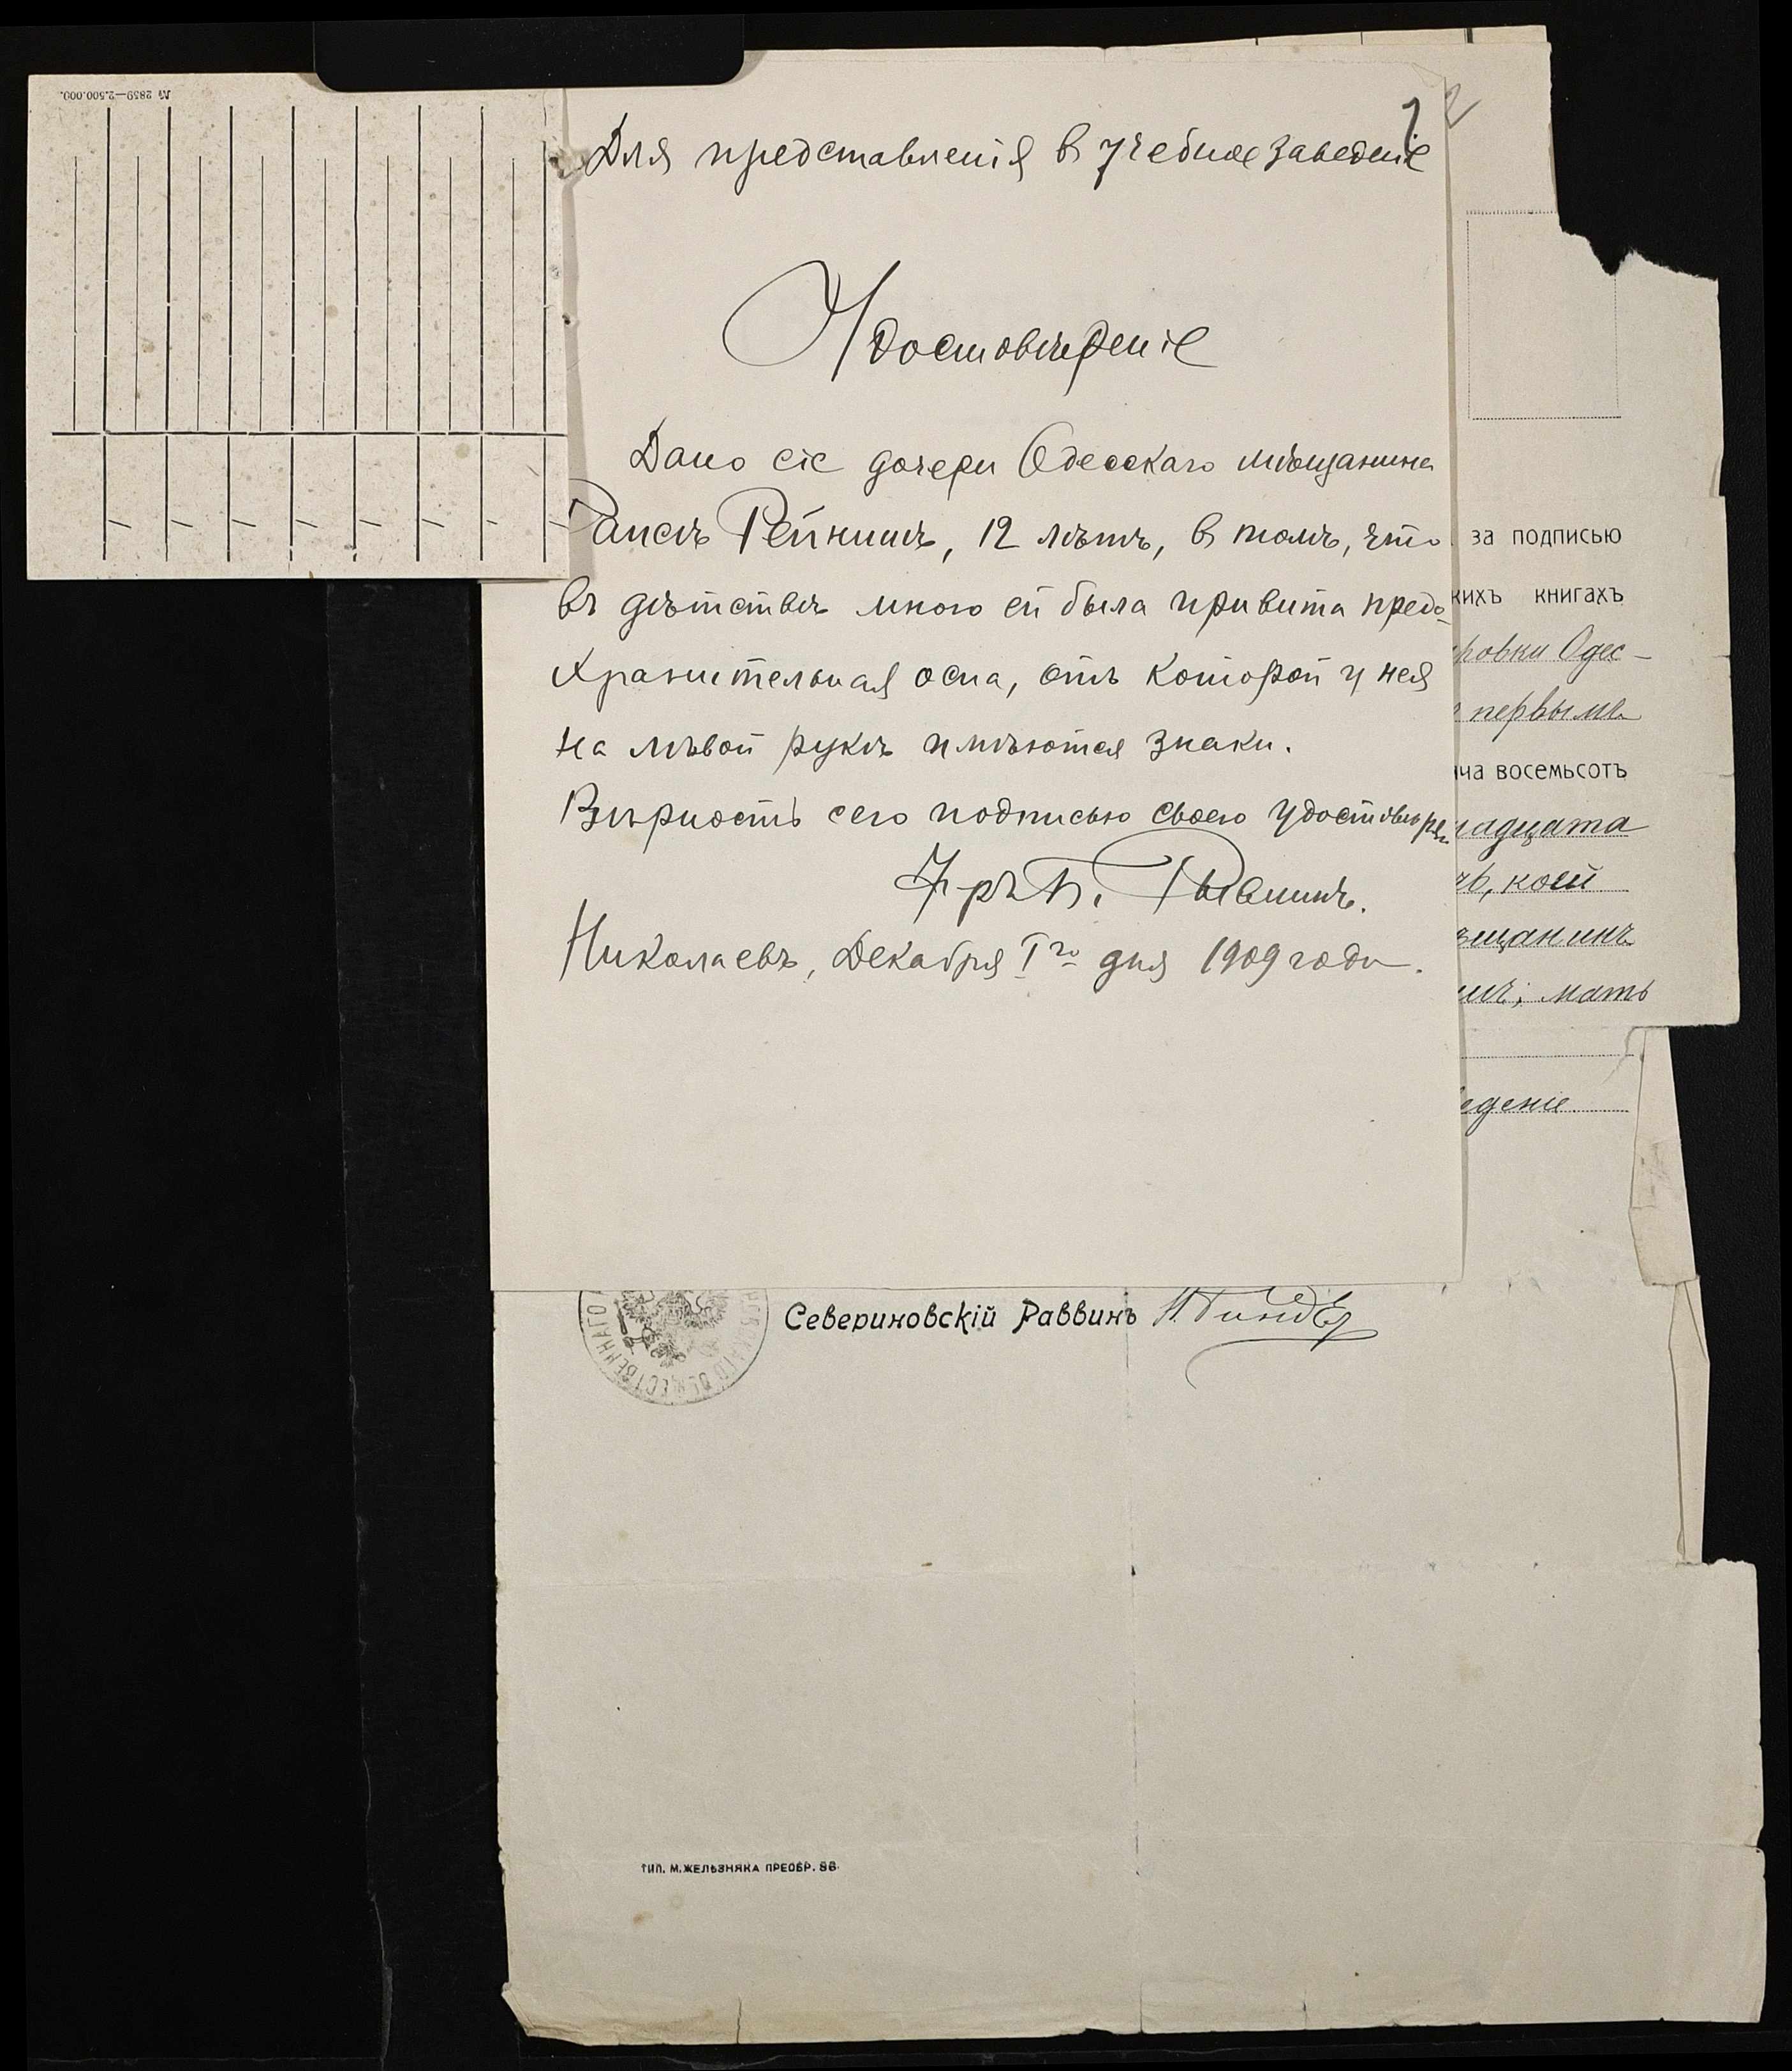 № 2859—2.500.000.
2
Для представленія в учебное заведеніе
Удостовѣреніе
Дано сіе дочери Одесскаго мѣщанина
Раисѣ Рейнишъ, 12 лѣтъ, в томъ, что
въ дѣтствѣ мною ей была привита предо-
хранительная оспа, отъ которой у нея
на лѣвой рукѣ имѣются знаки.
Вѣрность сего подписью своею удостовѣряю
Николаевъ, Декабря 1го дня 1909 года.
за подписью
кихъ книгахъ
ровки Одес-
первымъ
ча восемьсотъ
надцата
коей
ѣщанинъ
мать
еденіе
Севериновскій Раввинъ
ТИП. М. ЖЕЛѢЗНЯКА ПРЕОБР. 86.